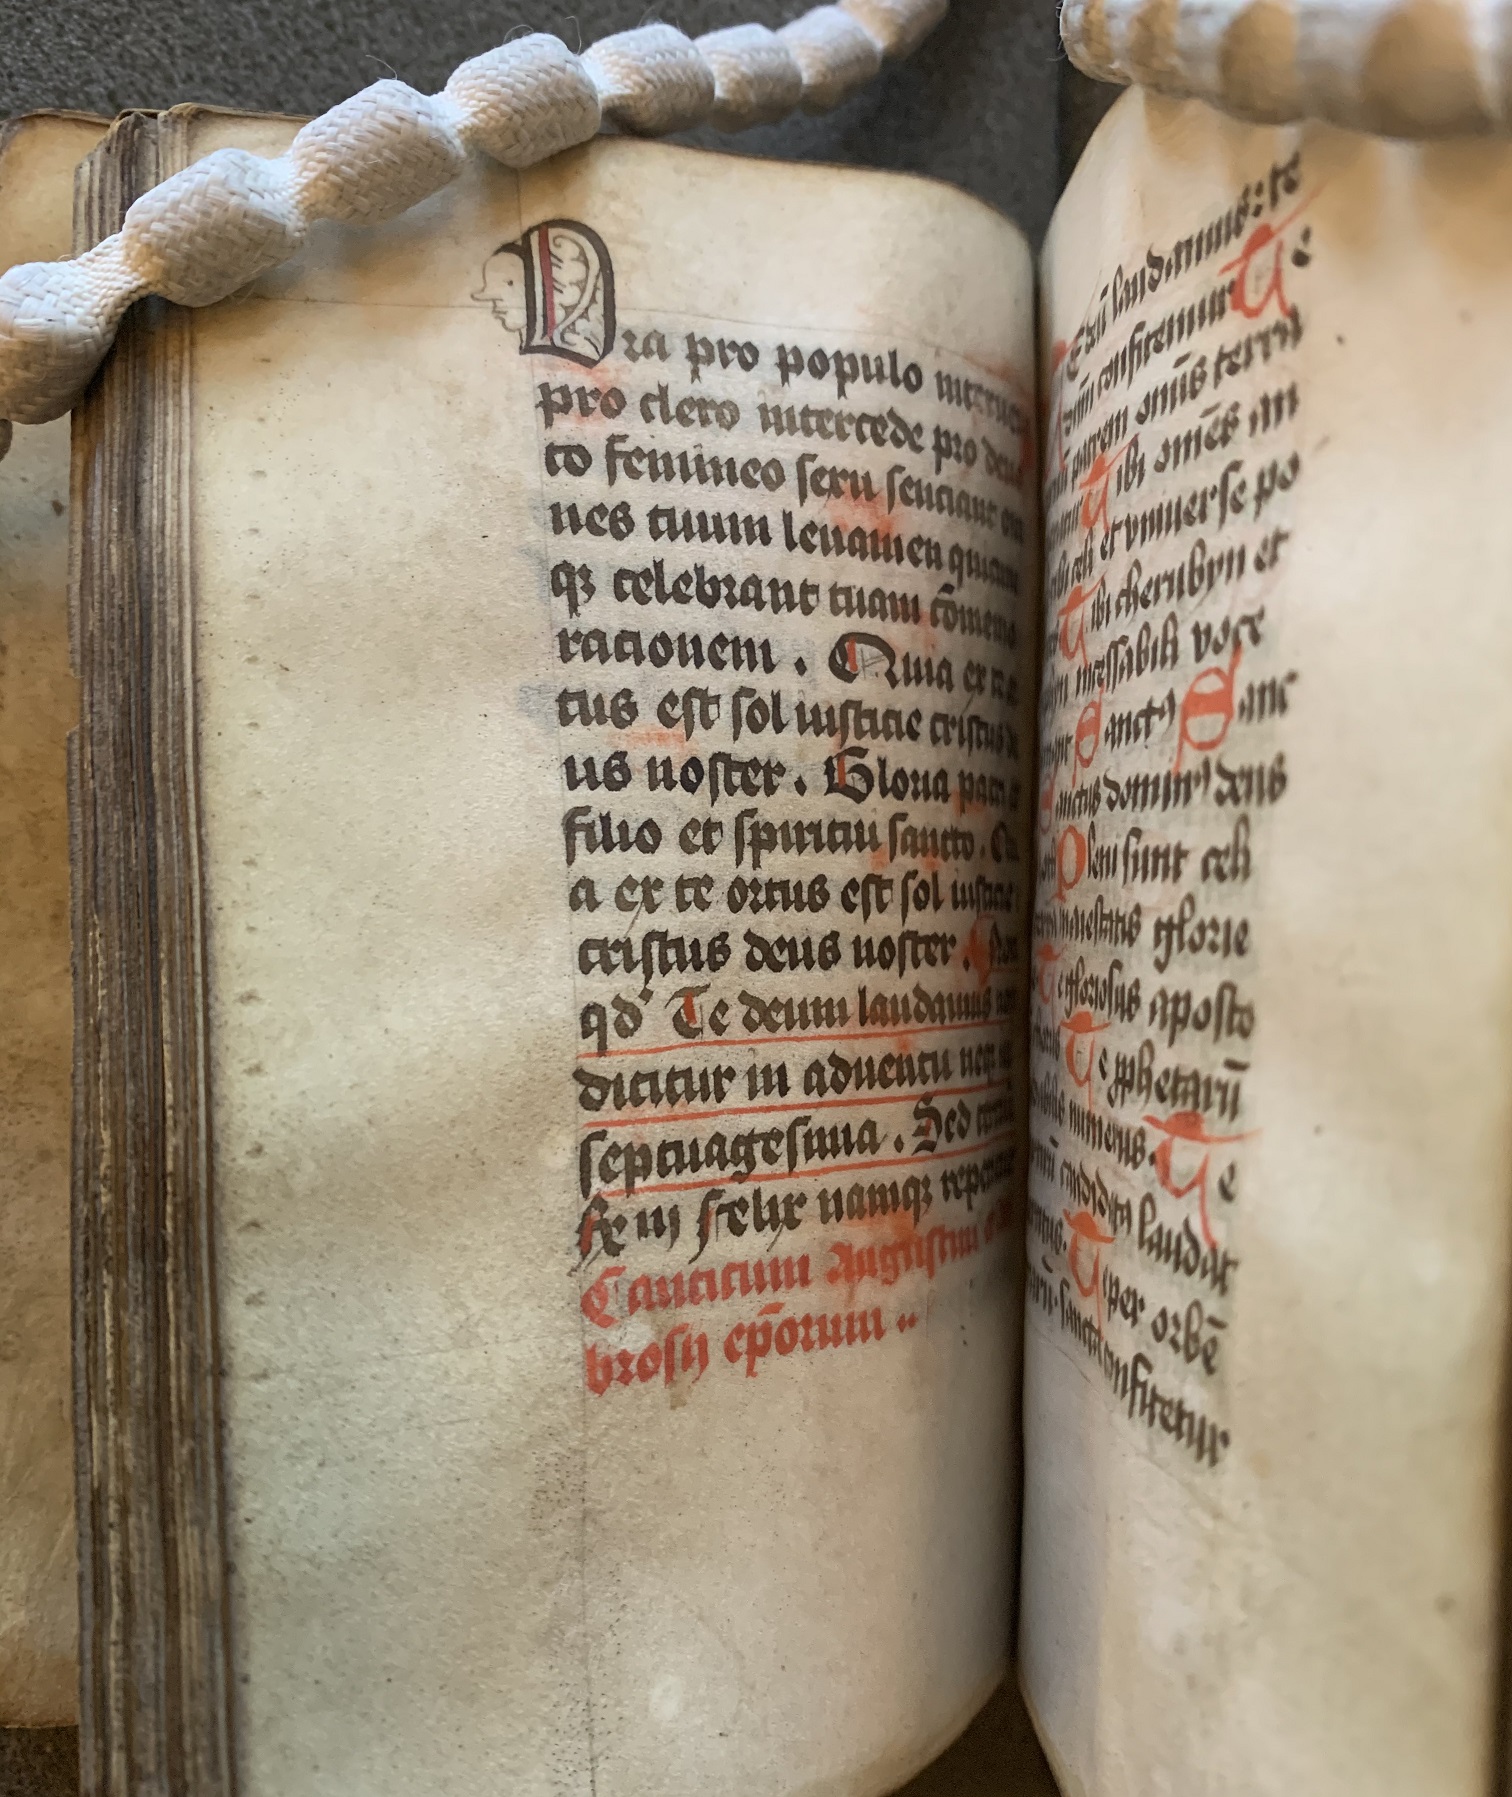 Ora pro populo
pro clero intercede pro deuo
to femineo sexu senciant om
nes tuum leuamen quicum
qꝫ celebrant tuam cōmemo
racionem . Quia ex te
tus est sol iusticie cristus de
us noster . Gloria patri
filio et spiritui sancto . Qui
a ex te ortus est sol iusticie
cristus deus noster . Nota
qd' Te deum laudamus non
dicitur in aduentu
septuagesima . Sed
ꝶ iij felix namqꝫ
Canticum Augustini
brosij ep̄orum
laudamus : te
confitemur Te
patrem omīs terra
Tibi omēs an
celi et vniuerse po
Tibi cherubyn et
incessabili voce
Sanctꝰ Sanc
Sanctus dominꝰ deus
Pleni sunt celi
maiestatis glorie
Te gloriosus aposto
Te ꝓphetarū
numerus . Te
candidatꝰ laudat
Te per orbē
sancta confitetur